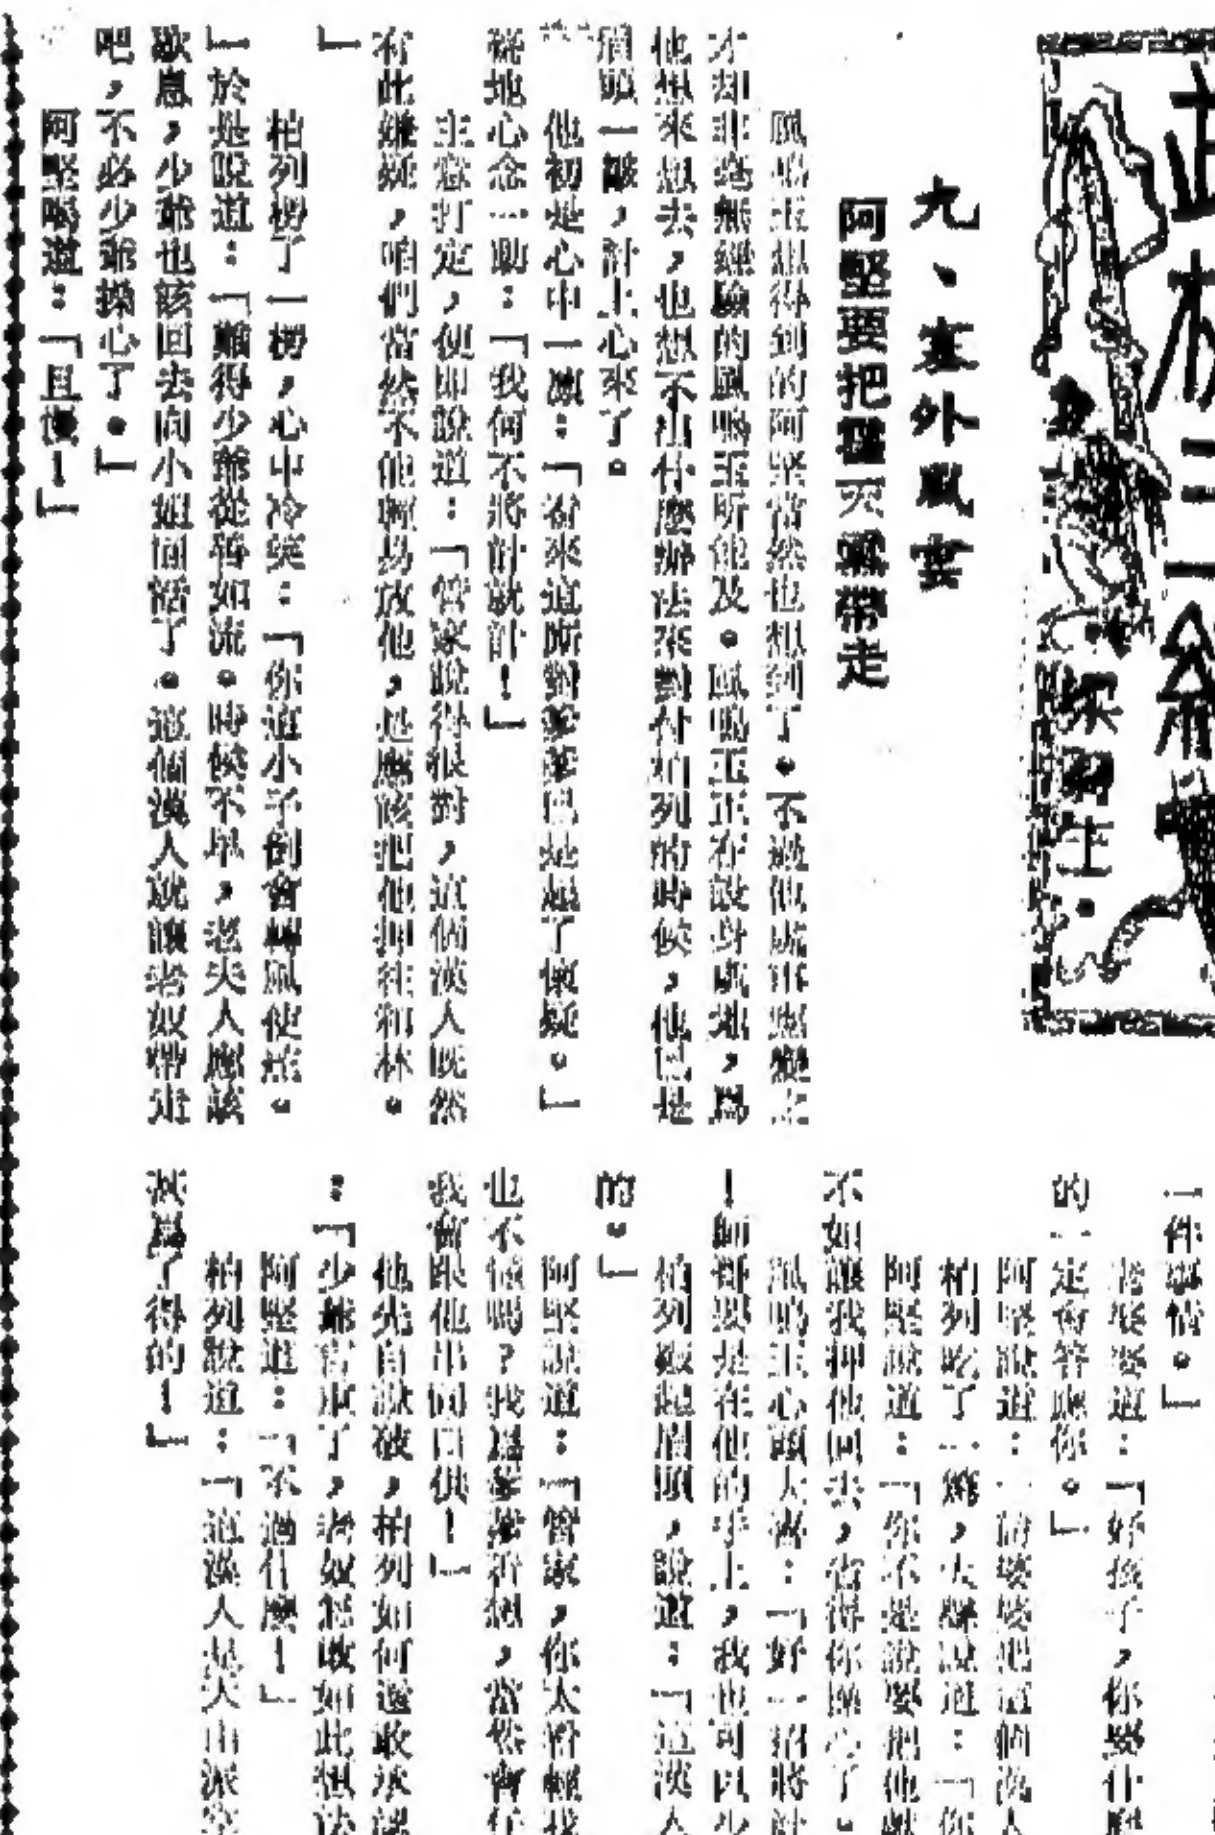 武林三
梁羽生·
九、塞外風雲
阿堅要把霍天雲帶走
鳳鳴玉想得到的阿堅當然也想到了。不過他處事應變之
才却非毫無經驗的鳳鳴玉所能及。鳳鳴玉正在設身處地,爲
他想來想去,也想不出什麼辦法來對付柏列的時侯,他已是
眉頭一皺,計上心來了。
他初是心中一凛:「看來這厮對爹爹已是起了懷疑。」
驀地心念一動:「我何不將計就計!」
主意打定,便即說道:「管家說得很對,這個漢人既然
有此嫌疑,咱們當然不能輕易放他,是應該把他押往和林。
」
柏列楞了一楞,心中冷笑:「你這小子倒會轉風使舵。
」於是說道:「難得少爺從善如流。時候不早,老夫人應該
歇息,少爺也該回去向小姐回話了。這個漢人就讓老奴帶走
吧,不必少爺操心了。」
阿堅喝道:「且慢!」
一件事情。」
老婆婆道:「好孩子,你要什麼
的一定會答應你。」
阿堅說道:「請婆婆把這個漢人
柏列吃了一驚,大聲說道:「你
阿堅說道:「你不是說要把他獻
不如讓我押他回去,省得你操心了。
鳳鳴玉心頭大喜:「好一招將計
!師哥要是在他的手上,我也可以少
柏列皺起眉頭,說道:「這漢人
的。」
阿堅說道:「管家,你太看輕我
也不信嗎?我爲爹爹着想,當然會仔
我會跟他串同口供!」
他先自說破,柏列如何還敢承認
:「少爺言重了,老奴怎敢如此想法
阿堅道:「不過什麼!」
柏列說道:「這漢人是天山派
汰爲了得的!」